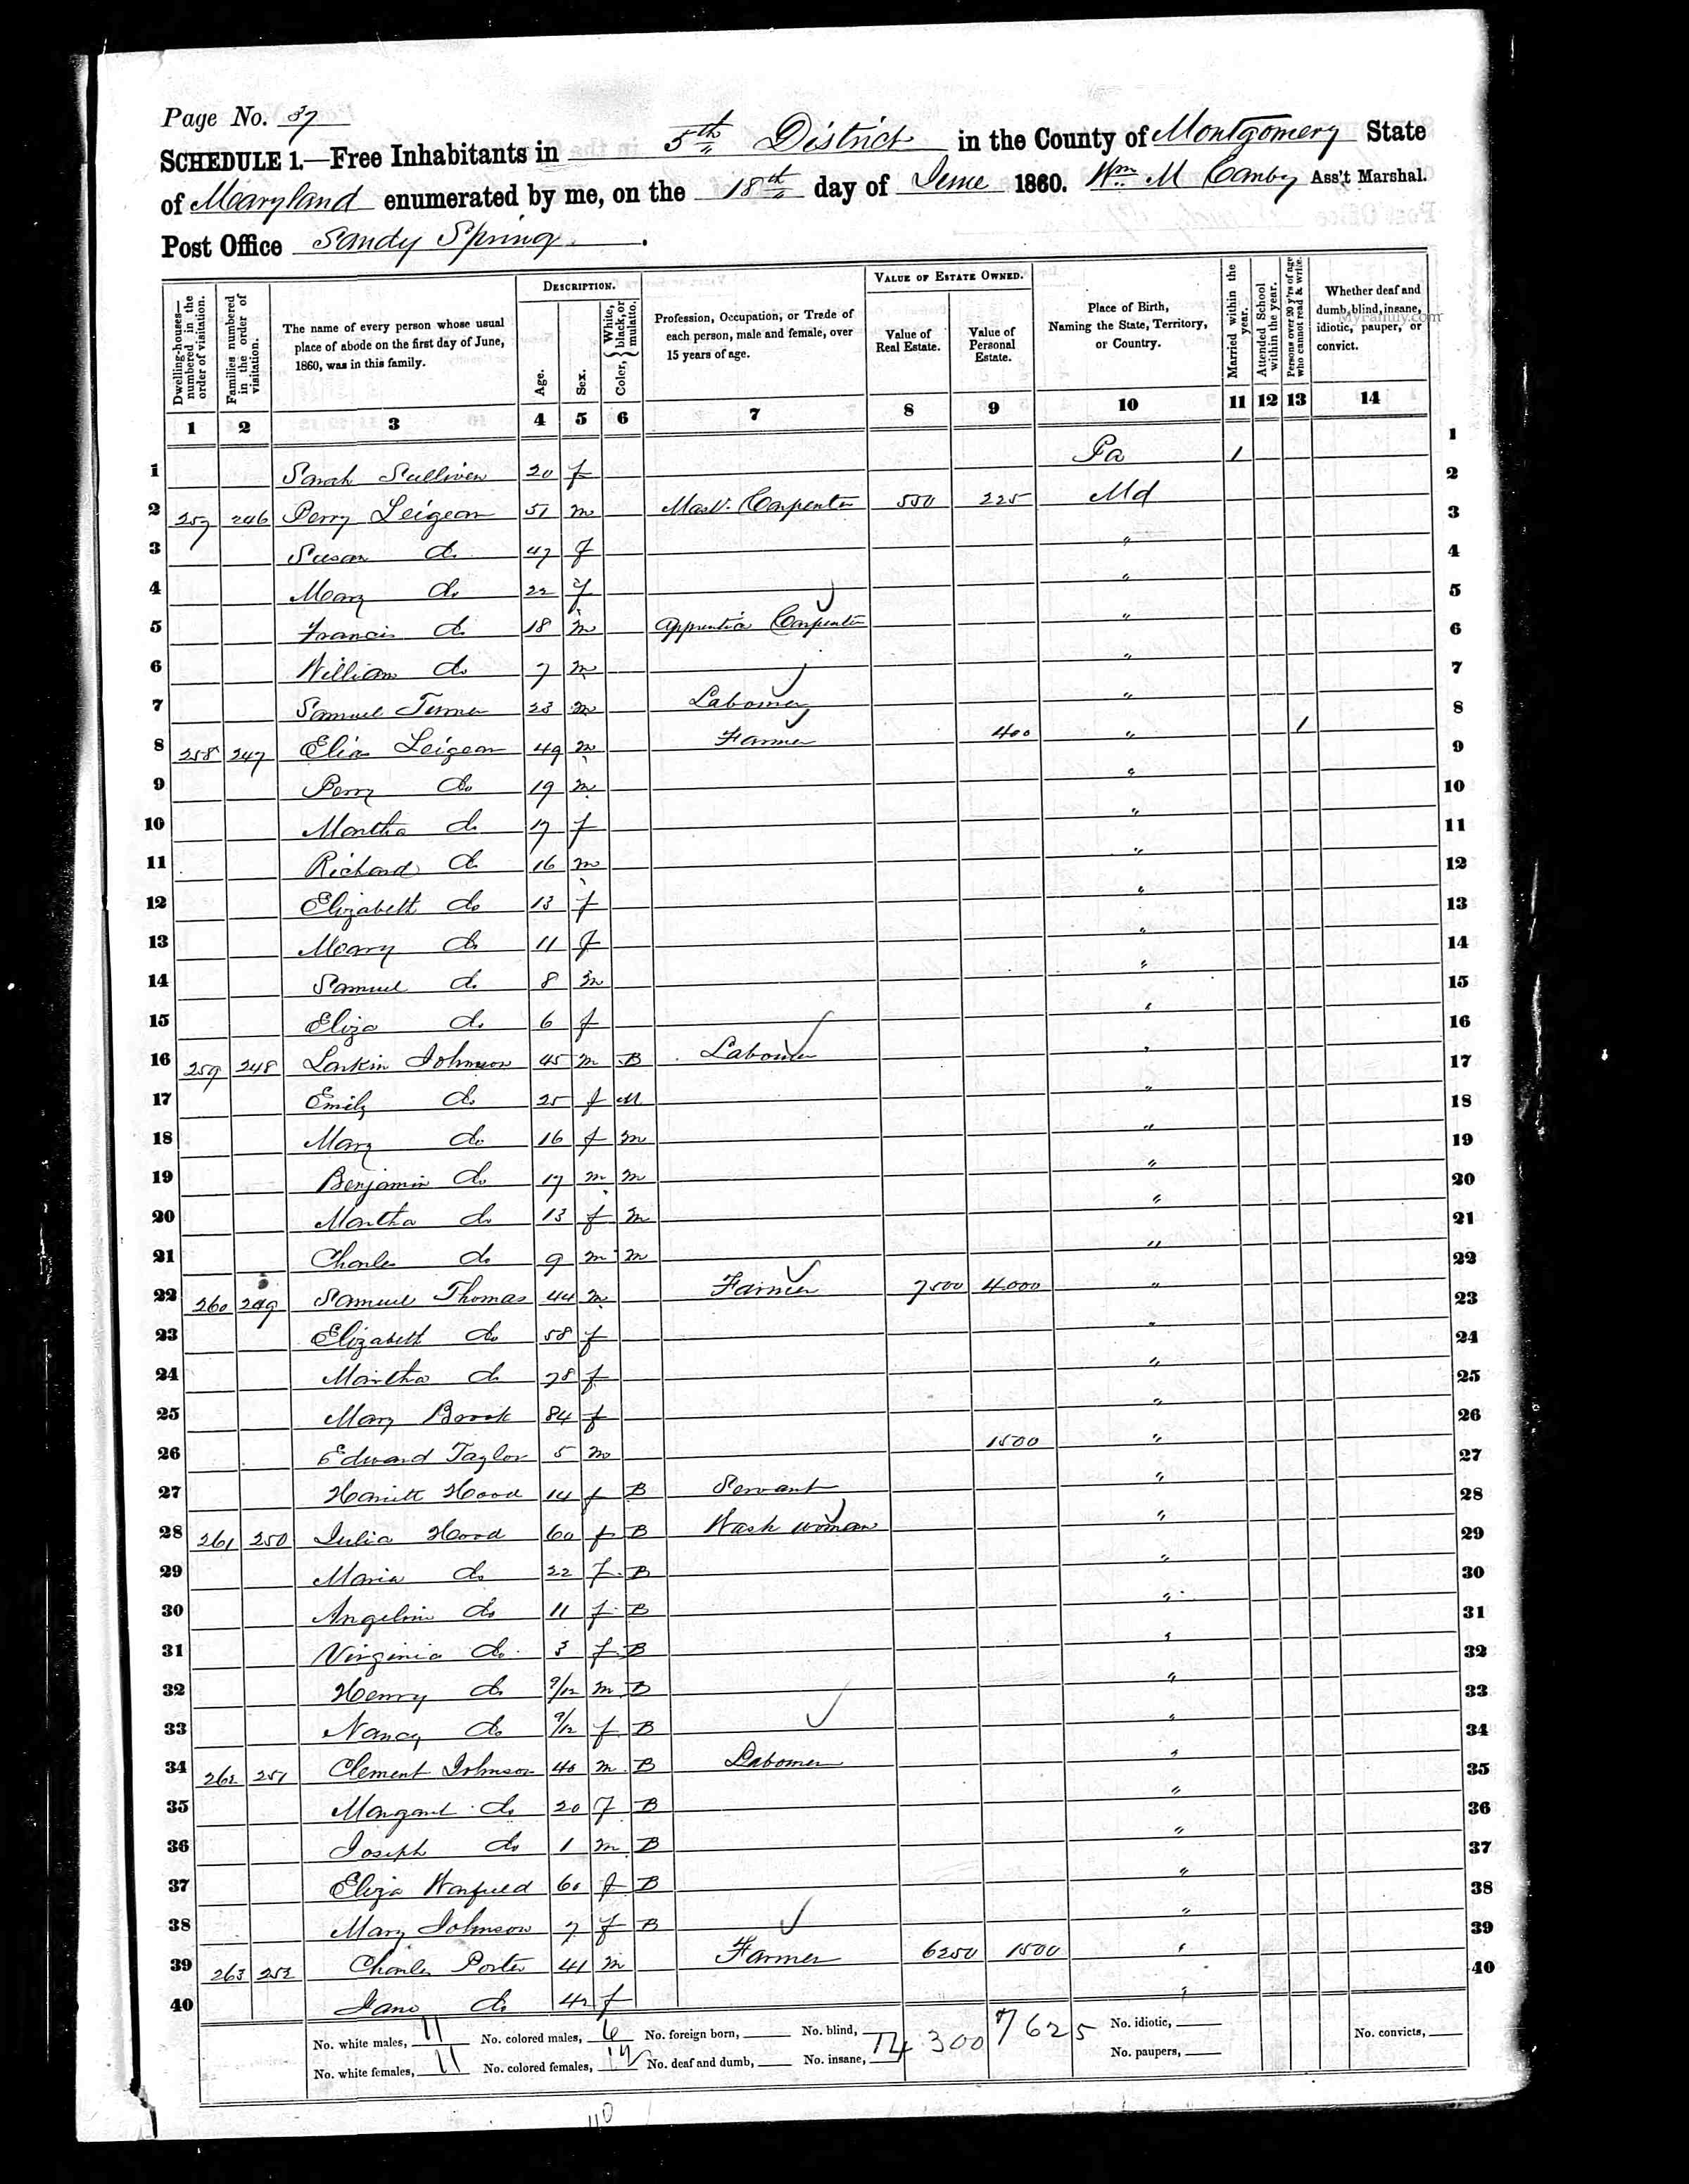 Page No. 37
SCHEDULE 1.—Free Inhabitants in 5th District in the County of Montgomery State
of Maryland enumerated by me, on the 18th day of June 1860. Wm M Canby Ass't Marshal.
Post Office Sandy Spring.
Dwelling-houses—numbered in the order of visitation.
Families numbered in the order of visitation.
The name of every person whose usual place of abode on the first day of June, 1860, was in this family.
DESCRIPTION.
Age.
Sex.
Color, { White, black, or mulatto.
Profession, Occupation, or Trade of each person, male and female, over 15 years of age.
VALUE OF ESTATE OWNED.
Value of Real Estate.
Value of Personal Estate.
Place of Birth, Naming the State, Territory, or Country.
Married within the year.
Attended School within the year.
Persons over 20 y'rs of age who cannot read & write.
Whether deaf and dumb, blind, insane, idiotic, pauper, or convict.
MyFamily.com
1 2 3 4 5 6 7 8 9 10 11 12 13 14
1 Sarah Sulliven 20 f Pa 1 1
2 257 246 Perry Leigean 51 m Mast. Carpenter 550 225 Md 2
3 Susan do 47 f " 3
4 Mary do 22 f " 4
5 Francis do 18 m Apprentice Carpenter " 5
6 William do 7 m " 6
7 Samuel Turner 23 m Labourer " 7
8 258 247 Elias Leigean 49 m Farmer 400 " 1 8
9 Perry do 19 m " 9
10 Martha do 17 f " 10
11 Richard do 16 m " 11
12 Elizabeth do 13 f " 12
13 Mary do 11 f " 13
14 Samuel do 8 m " 14
15 Eliza do 6 f " 15
16 259 248 Larkin Johnson 45 m B Labourer " 16
17 Emily do 25 f M " 17
18 Mary do 16 f m " 18
19 Benjamin do 17 m m " 19
20 Martha do 13 f m " 20
21 Charles do 9 m m " 21
22 260 249 Samuel Thomas 44 m Farmer 7500 4000 " 22
23 Elizabeth do 58 f " 23
24 Martha do 78 f " 24
25 Mary Brook 84 f " 25
26 Edward Taylor 5 m 1500 " 26
27 Hariett Hood 14 f B Servant " 27
28 261 250 Julia Hood 60 f B Wash woman " 28
29 Maria do 22 f B " 29
30 Angelin do 11 f B " 30
31 Virginia do 3 f B " 31
32 Henry do 9/12 m B " 32
33 Nancy do 9/12 f B " 33
34 262 251 Clement Johnson 40 m B Labourer " 34
35 Margaret do 20 f B " 35
36 Joseph do 1 m B " 36
37 Eliza Warfield 60 f B " 37
38 Mary Johnson 7 f B " 38
39 263 252 Charles Porter 41 m Farmer 6250 1500 " 39
40 Jane do 42 f " 40
No. white males, 11 No. colored males, 6 No. foreign born, No. blind, 14 300 7625 No. idiotic, No. convicts,
No. white females, 11 No. colored females, 12 No. deaf and dumb, No. insane, No. paupers,
40